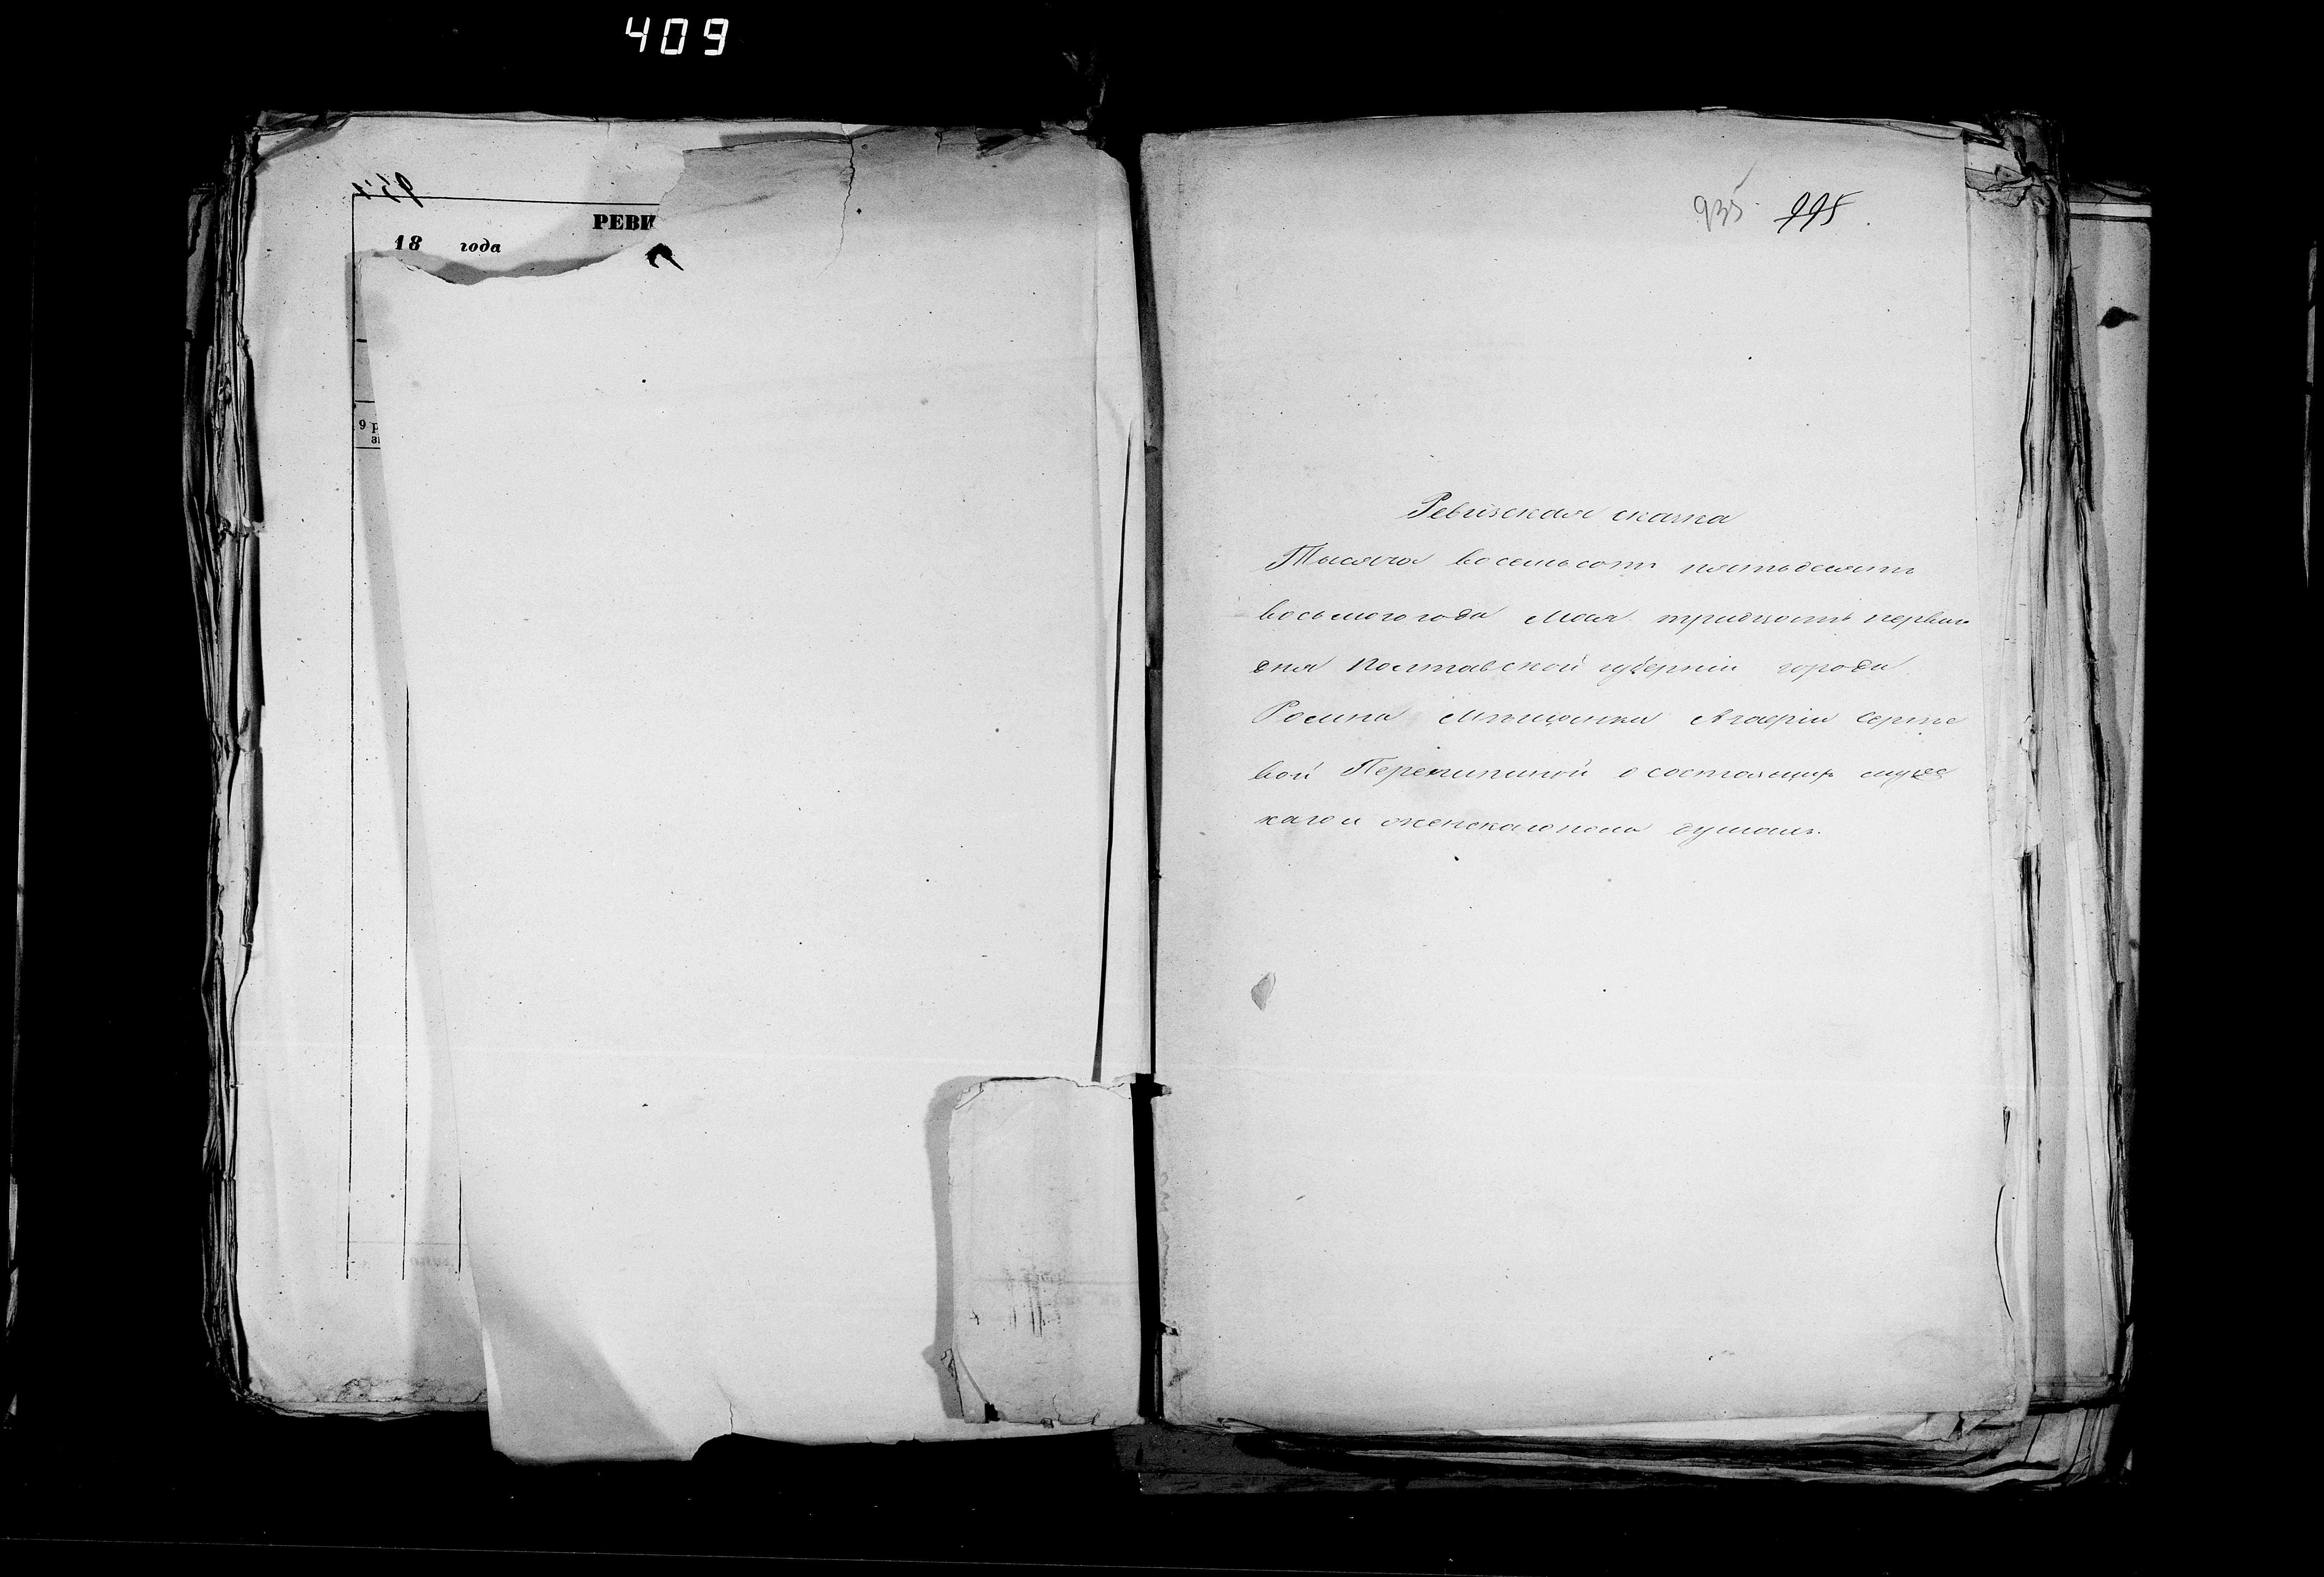 409
РЕВИ
18 года
9 р
935 995
Ревизская сказка
Тысяча восемьсот пятьдесятъ
восьмого года Мая тридцать перваго
дня Полтавской губерніи города
Ромна Мѣщанки Агафіи Серге
вой о состоящихъ мужес
каго и женскаго пола душахъ.